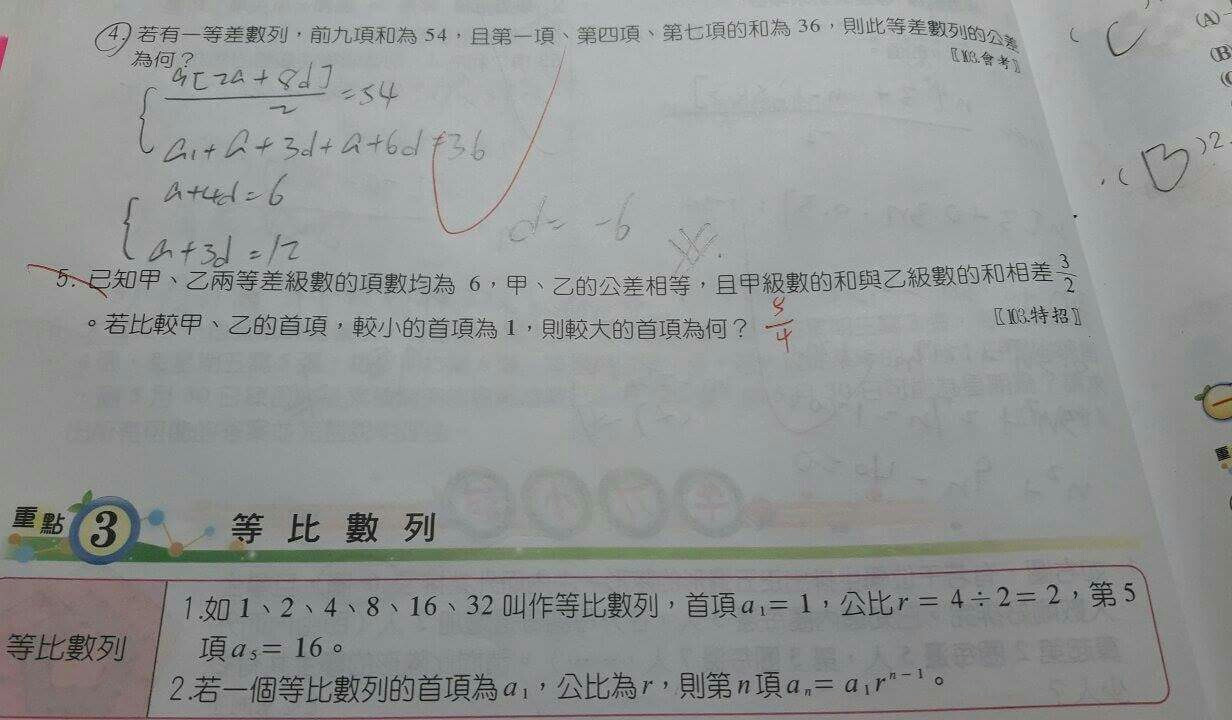 4. 若有一等差數列，前九項和為 54，且第一項、第四項、第七項的和為 36，則此等差數列的公差
為何？
〖103.會考〗
9[2a+8d]/2=54
a1+a+3d+a+6d=36
a+4d=6
a+3d=12
d=-6
5. 已知甲、乙兩等差級數的項數均為 6，甲、乙的公差相等，且甲級數的和與乙級數的和相差3/2
。若比較甲、乙的首項，較小的首項為 1，則較大的首項為何？ 5/4
〖103.特招〗
重點 3 等比數列
等比數列
1.如 1、2、4、8、16、32 叫作等比數列，首項a₁=1，公比r=4÷2=2，第 5
項a₅=16。
2.若一個等比數列的首項為a₁，公比為r，則第n項aₙ=a₁rⁿ⁻¹。
( C
(A)
(B)
( B )2.
重